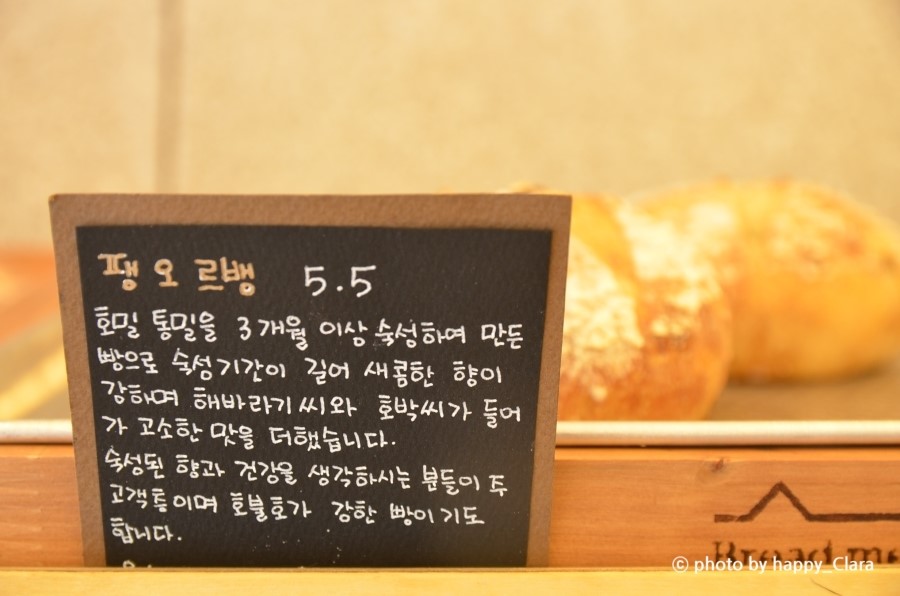 팽 오 르뱅 5.5
호밀 통밀을 3개월 이상 숙성하여 만든
빵으로 숙성기간이 길어 새콤한 향이
강하며 해바라기씨와 호박씨가 들어
가 고소한 맛을 더했습니다.
숙성된 향과 건강을 생각하시는 분들이 주
고객층이며 호불호가 강한 빵이기도
합니다.
Bread
ⓒ photo by happy_Clara